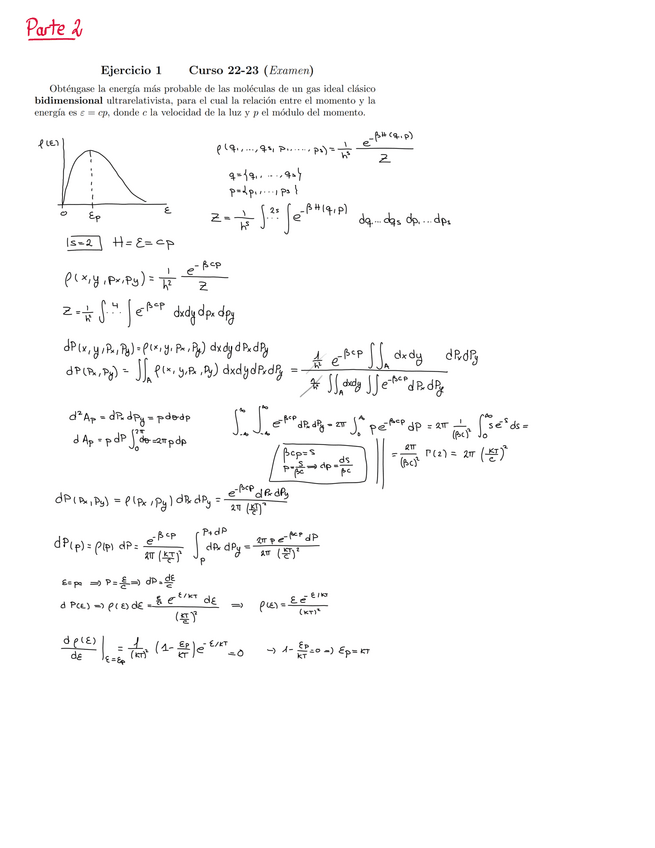 Parte 2
Ejercicio 1 Curso 22-23 (Examen)
Obténgase la energía más probable de las moléculas de un gas ideal clásico
bidimensional ultrarelativista, para el cual la relación entre el momento y la
energía es ε = cp, donde c la velocidad de la luz y p el módulo del momento.
ρ(ε)
0 εp ε
ρ(q₁, ..., qs, p₁, ..., ps) = 1/h^s e^(-βH(q,p))/Z
q = {q₁, ..., qs}
p = {p₁, ..., ps}
Z = 1/h^s ∫ ··· 2s ∫ e^(-βH(q,p)) dq₁...dqs dp₁...dps
s=2 H = ε = cp
ρ(x,y,px,py) = 1/h² e^(-βcp)/Z
Z = 1/h² ∫ ··· 4 ∫ e^(-βcp) dxdy dpx dpy
dP(x,y,Px,Py) = ρ(x,y,Px,Py) dxdy dPx dPy
dP(Px,Py) = ∬_A ρ(x,y,Px,Py) dxdy dPx dPy = (1/h² e^(-βcp) ∬_A dxdy dPx dPy) / (1/h² ∬_A dxdy ∬ e^(-βcp) dPx dPy)
d²Ap = dPx dPy = p dθ dp
dAp = p dP ∫₀^2π dθ = 2π p dp
∫_-∞^∞ ∫_-∞^∞ e^(-βcp) dPx dPy = 2π ∫₀^∞ p e^(-βcp) dP = 2π 1/(βc)² ∫₀^∞ s e^(-s) ds =
= 2π/(βc)² Γ(2) = 2π (KT/c)²
βcp = s
p = s/βc ⟹ dp = ds/βc
dP(Px,Py) = ρ(Px,Py) dPx dPy = e^(-βcp) dPx dPy / 2π (KT/c)²
dP(p) = ρ(p) dP = e^(-βcp) / 2π (KT/c)² ∫_p^(P+dP) dPx dPy = 2π p e^(-βcp) dP / 2π (KT/c)²
ε = pc ⟹ P = ε/c ⟹ dP = dε/c
dP(ε) ⟹ ρ(ε) dε = ε/c² e^(-ε/KT) dε / (KT/c)² ⟹ ρ(ε) = ε e^(-ε/KT) / (KT)²
dρ(ε)/dε |_(ε=εp) = 1/(KT)² (1 - εp/KT) e^(-ε/KT) = 0 → 1 - εp/KT = 0 ⟹ εp = KT